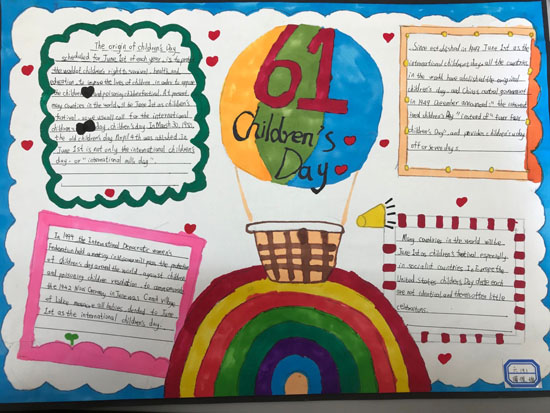 61
Children's
Day
The origin of children's Day
scheduled for June 1st of each year, is to
the world of children's right to survival, health and
education, to improve the lives of children, in order to oppose
the children and poisoning children festival. At present
many countries in the world will be June 1st as children's
festival
children's day, children's Day. In March 30,
the old children's Day April 4th was abolished. In
June 1st is not only the international children's
day, or "international milk day".
Since established in 1949 June 1st as the
international children's day, all the countries
in the world have established the original
children's day, and China's central government
in 1949 December announced "the international
children's Day" instead of
children's Day" and provides children's day
off or seven days.
In 1949, the International Democratic women's
Federation held a meeting in Moscow will pass the protection
of children's day around the world, against children
and poisoning children resolution, to commemorate
the 1942 Nazi Germany in
of babies decided to June
1st as the international children's day.
Many countries in the world will be
June 1st as children's festival, especially
in socialist countries. In Europe the
United States, children's Day date each
are not identical, and there's often little
celebrations.